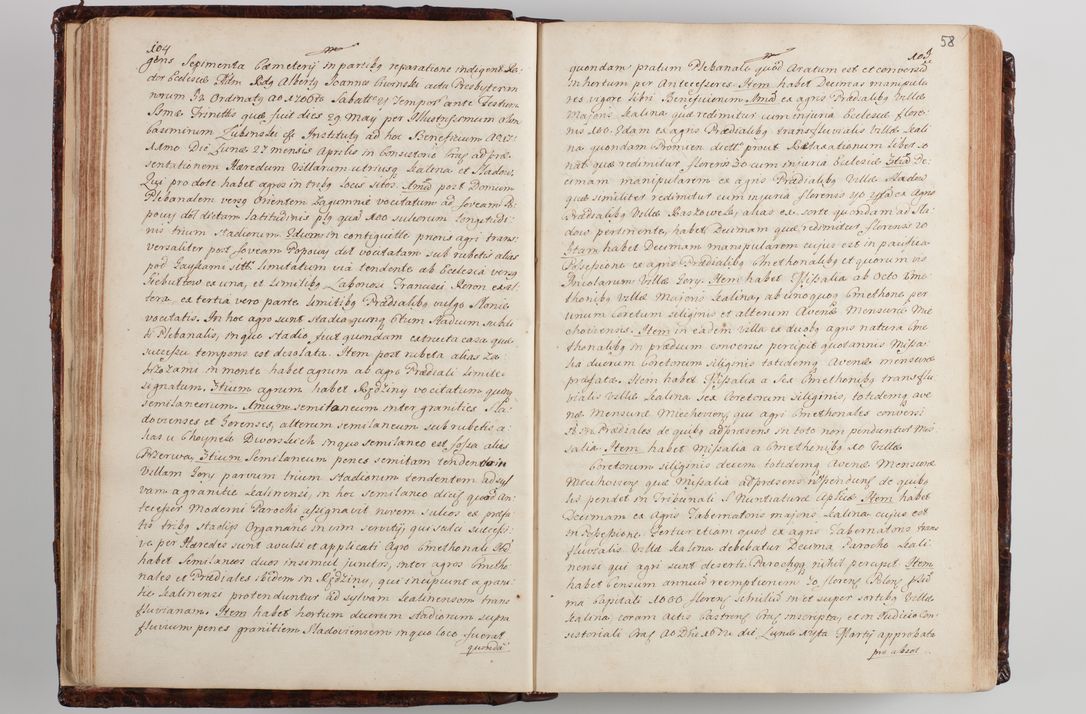 104
gens Sepimenta Cæmeterij in partibq reparatione indigent
dor Ecclesiæ Adm Rdg Albertq Joannes actu Presbyterin
norum In Ordinatq Ao 1700 Sabatho Tempor ante Festum
Ssmæ Trinitts quæ fuit dies 29 May per Illustrissimum
Casimirum Lubinski Institutq ad hoc Beneficium
Die Lunæ 27 mensis Aprilis in Consistorio Crac ad præ
sentationem Hæredum Villarum utriusq Xealina et Sladow.
Qui pro dote habet agros in tribq locis sitos. Aimũ post Domum
Plebanalem versq Orientem Zagumnie vocitatum ad foveam Po
powy dol dictam latitudinis plq quã 100 sulcorum longitudi
nis trium stadiorum. 2dum in contiguitte prioris agri trans
versaliter post foveam Popowy dol vocitatam sub rubetis alias
pod Gaykami sitũ limitatum via tendente ab Ecclesia versq
ex una, et limitibq Laboriosi Francisci
tera, ex tertia vero parte limitibq Prædialibq vulgo Stonie
vocitatis. In hoc agro sunt stadia quinq 6tum stadium subdi
ti Plebanalis, in quo stadio fuit quondam extructa casa quæ
successu temporis est desolata. Item post rubeta alias za
brzozami in monte habet agrum ab agro Prædiali limite
signatum. 3tium agrum habet Nędziny vocitatum quinq
semilaneorum. Amum semilaneum inter granities Sla
dovienses et Gorenses, alterum semilaneum sub rubetis a
lias u Choynek Dworskich in quo semilaneo est fossa alias
Przerwa. 3tium Semilaneum penes semitam tendentẽ in
Villam Gory parvum trium stadiorum tendentem ad syl
vam a granitie Xealinensi, in hoc semilaneo dicit quod An
tecessor Moderni Parochi assignavit novem sulcos ex præfa
tis tribq stadijs Organario in vim servitij qui sulci successi
ve per Hæredes sunt avulsi et applicati Agro Cmethonali
habet Semilaneos duos insimul junctos, inter agros Cmetho
nales et Prædiales ibidem in Nędziny, qui incipiunt a grani
tie Xealinensi protenduntur ad sylvam Xealinensem trans
fluvianam. Item habet hortum duorum stadiorum supra
fluvium penes granitiem Sladoviensem in quo loco fuerat
quondã
58
105
quondam pratum Plebanale quod Aratum est et conversũ
in hortum per Antecessores. Item habet Decimas manipula
res vigore Libri Beneficiorum Aimã ex agris Prædialibq Villæ
Majoris Xealina quæ redimitur cum injuria Ecclesiæ flore
nis 100. 2dam ex agris Prædialibq transfluvialis Villæ Xeali
na quondam Promien dictæ prout Taxationum liber so
nat quæ redimitur floren 20 cum injuria Ecclesiæ 3tiã De
cimam manipularem ex agris Prædialibq Villæ Sladow
quæ similiter redimitur cum injuria florenis 40 4tã ex Agris
Prædialibq Villæ Raszowek, alias ex sorte quondam ad Sla
dow pertinente, habet Decimam quæ redimitur florenis 20
5tam habet Decimam manipularem cujus est in pacifica
Possessione ex agris Prædialibq Cmethonalibq et quorum vis
Incolarum Villæ Gory. Item habet Missalia ab octo Cme
thonibq Villæ Majoris Xealina, ab unoquoq Cmethone per
unum Coretum siliginis et alterum Avenæ Mensuræ Mie
choviensis. Item in eadem Villa ex duobq agris natura Cme
thonalibq in prædium conversis percipit quotannis Missa
lia duorum Coretorum siliginis totidemq Avenæ mensuræ
præfatæ. Item habet Missalia a Sex Cmethonibq transflu
vialis Villæ Xealina sex Coretorum siliginis, totidemq ave
næ Mensuræ Miechovien, qui agri Cmethonales conversi
st in Prædiales de quibq ad præsens in toto non penduntur Mis
salia Item habet Missalia a Cmethonibq 10 Villæ
Coretorum siliginis decem totidemq Avenæ Mensuræ
Miechovien, quæ Missalia ad præsens non pendunt de quibq
lis pendet in Tribunali S Nuntiaturæ Aplicæ Item habet
Decimam ex Agris Tabernatoris majoris Xealina cujus est
in Possessione. Fertur etiam quod ex agris Tabernatoris trans
fluvialis Villæ Xealina debebatur Decima Parocho Xeali
nensi qui agri sunt deserti Parochusq nihil percipit Item
habet Censum annuũ reemptionem 70 floren Polon
ma Capitali 1000 floren in et super sortibq Villæ
Xealina, coram Actis Castren Crac inscripta, et in Judicio Con
sistoriali Crac Ao Dni 1672 die Lunæ Martij approbata
pro absol